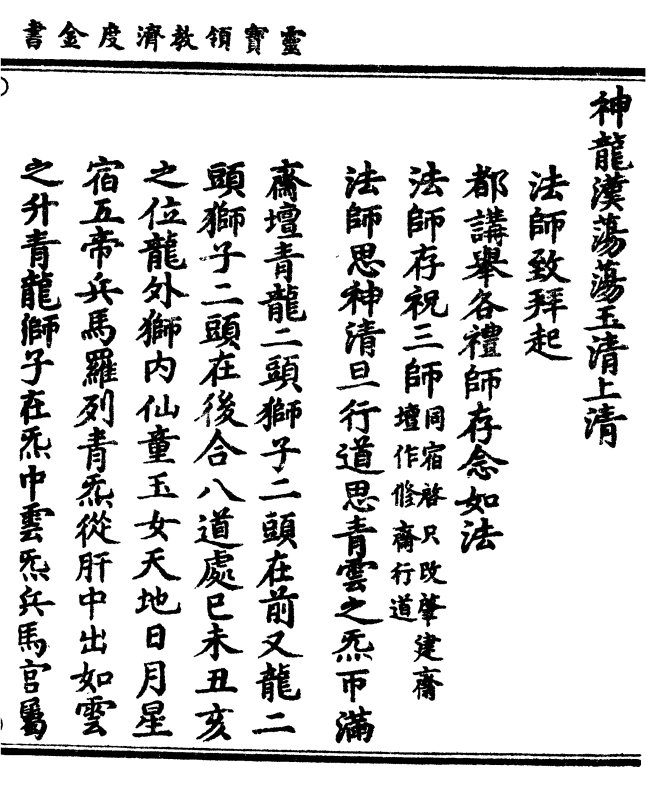 靈寶領教濟度金書
神龍漢蕩蕩玉清上清
法師致拜起
都講舉各禮師存念如法
法師存祝三師同宿啓只改肇建齋
壇作修齋行道
法師思神清旦行道思青雲之炁帀滿
齋壇青龍二頭獅子二頭在前又龍二
頭獅子二頭在後合八道處巳未丑亥
之位龍外獅內仙童玉女天地日月星
宿五帝兵馬羅列青炁從肝中出如雲
之升青龍獅子在炁中雲炁兵馬官屬